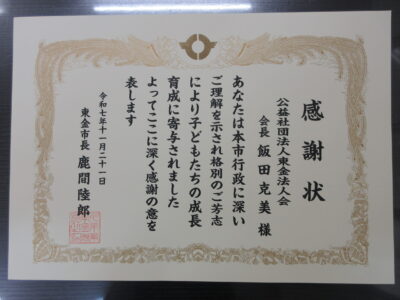 感謝状
公益社団法人東金法人会
会長 飯田克美 様
あなたは本市行政に深い
ご理解を示され格別のご芳志
により子どもたちの成長
育成に寄与されました
よってここに深く感謝の意を
表します
令和七年十一月二十一日
東金市長 鹿間陸郎